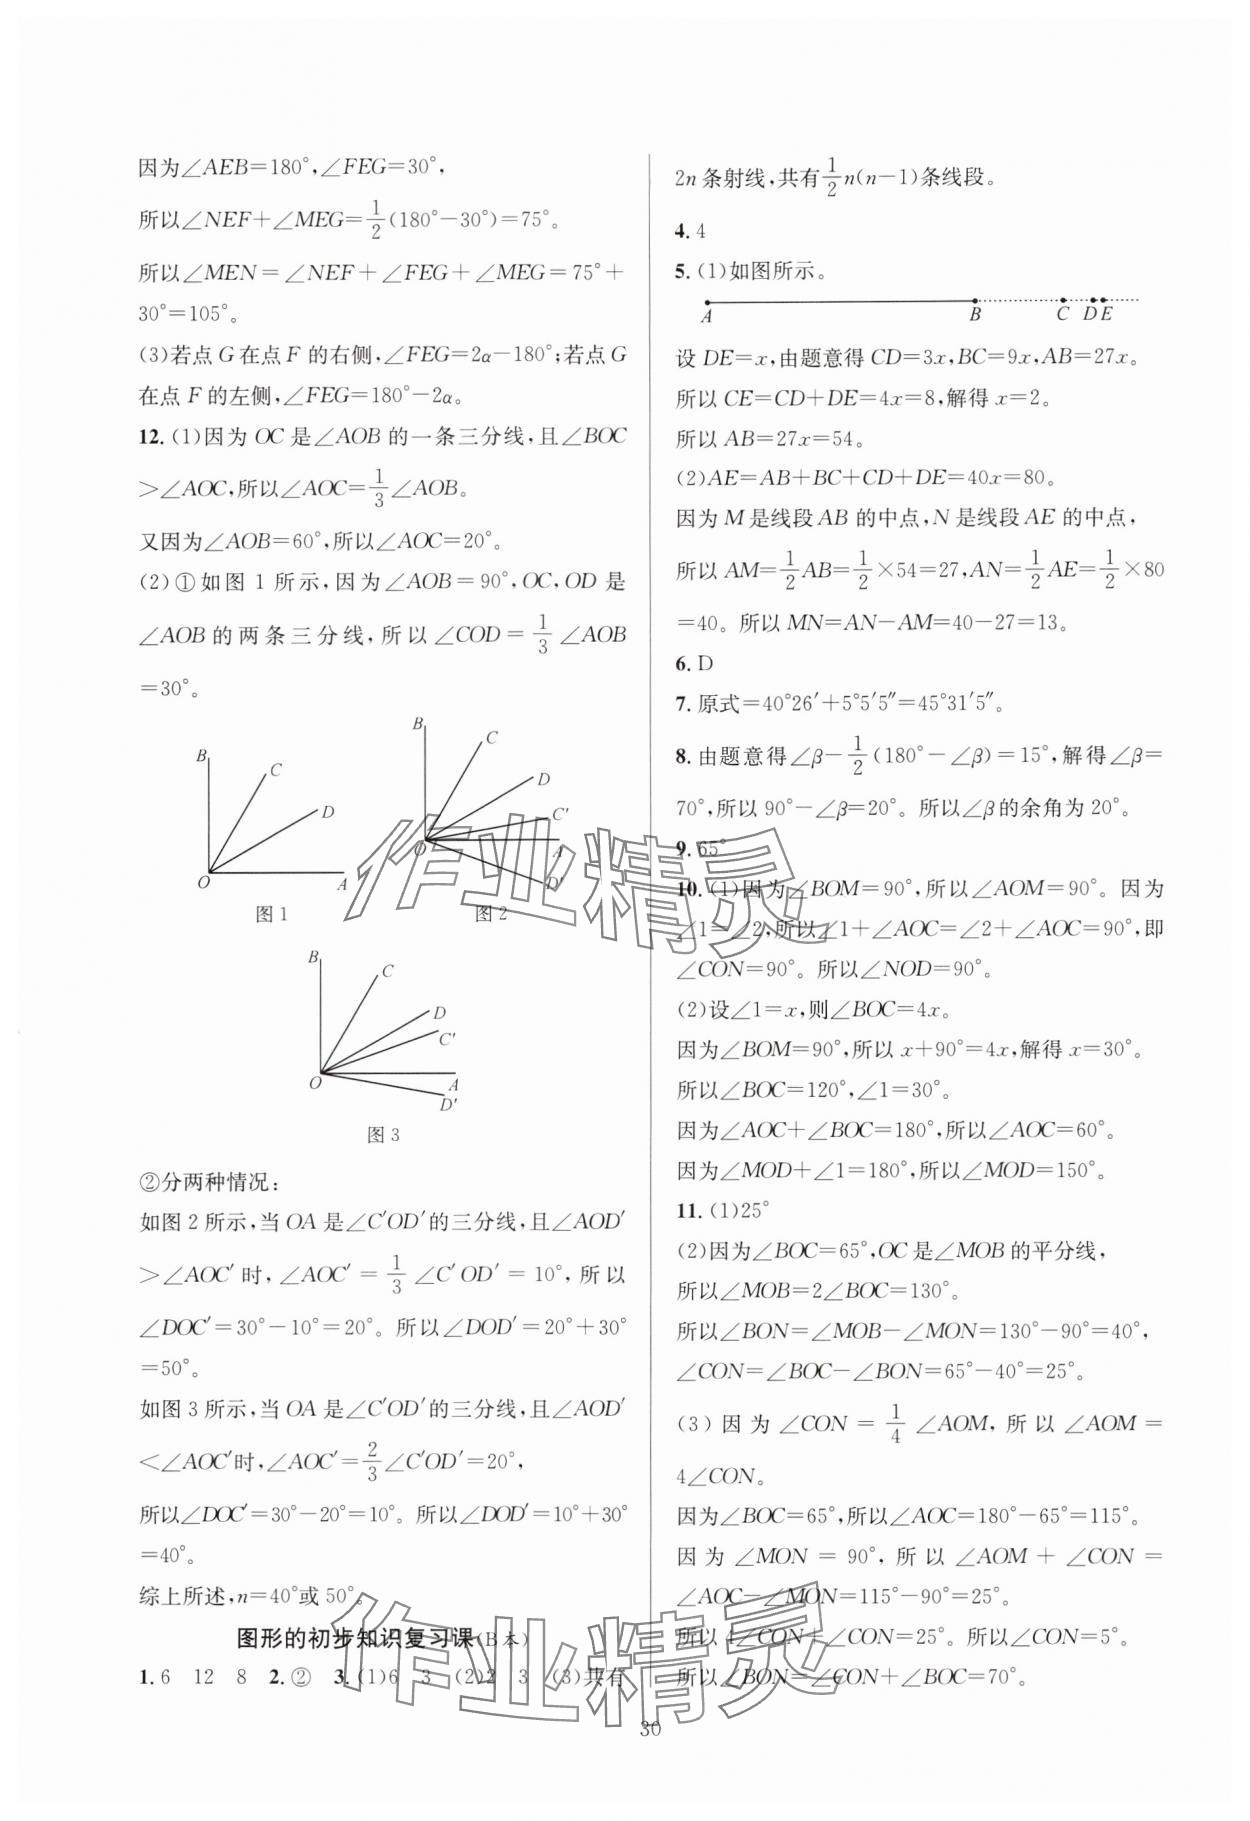 因为∠AEB=180°,∠FEG=30°,
所以∠NEF+∠MEG=1/2(180°-30°)=75°。
所以∠MEN=∠NEF+∠FEG+∠MEG=75°+
30°=105°。
(3)若点G在点F的右侧,∠FEG=2α-180°;若点G
在点F的左侧,∠FEG=180°-2α。
12.(1)因为OC是∠AOB的一条三分线,且∠BOC
>∠AOC,所以∠AOC=1/3∠AOB。
又因为∠AOB=60°,所以∠AOC=20°。
(2)①如图1所示,因为∠AOB=90°,OC,OD是
∠AOB的两条三分线,所以∠COD=1/3∠AOB
=30°。
B C D O A
图1
B C D C′ O A D′
图2
B C D C′ O A D′
图3
②分两种情况:
如图2所示,当OA是∠C′OD′的三分线,且∠AOD′
>∠AOC′时,∠AOC′=1/3∠C′OD′=10°,所以
∠DOC′=30°-10°=20°。所以∠DOD′=20°+30°
=50°。
如图3所示,当OA是∠C′OD′的三分线,且∠AOD′
<∠AOC′时,∠AOC′=2/3∠C′OD′=20°,
所以∠DOC′=30°-20°=10°。所以∠DOD′=10°+30°
=40°。
综上所述,n=40°或50°。
图形的初步知识复习课(B本)
1.6 12 8 2.② 3.(1)6 3 (2)2 3 (3)共有
2n条射线,共有1/2n(n-1)条线段。
4.4
5.(1)如图所示。
A B C D E
设DE=x,由题意得CD=3x,BC=9x,AB=27x。
所以CE=CD+DE=4x=8,解得x=2。
所以AB=27x=54。
(2)AE=AB+BC+CD+DE=40x=80。
因为M是线段AB的中点,N是线段AE的中点,
所以AM=1/2AB=1/2×54=27,AN=1/2AE=1/2×80
=40。所以MN=AN-AM=40-27=13。
6.D
7.原式=40°26′+5°5′5″=45°31′5″。
8.由题意得∠β-1/2(180°-∠β)=15°,解得∠β=
70°,所以90°-∠β=20°。所以∠β的余角为20°。
9.65°
10.(1)因为∠BOM=90°,所以∠AOM=90°。因为
∠1=∠2,所以∠1+∠AOC=∠2+∠AOC=90°,即
∠CON=90°。所以∠NOD=90°。
(2)设∠1=x,则∠BOC=4x。
因为∠BOM=90°,所以x+90°=4x,解得x=30°。
所以∠BOC=120°,∠1=30°。
因为∠AOC+∠BOC=180°,所以∠AOC=60°。
因为∠MOD+∠1=180°,所以∠MOD=150°。
11.(1)25°
(2)因为∠BOC=65°,OC是∠MOB的平分线,
所以∠MOB=2∠BOC=130°。
所以∠BON=∠MOB-∠MON=130°-90°=40°,
∠CON=∠BOC-∠BON=65°-40°=25°。
(3)因为∠CON=1/4∠AOM,所以∠AOM=
4∠CON。
因为∠BOC=65°,所以∠AOC=180°-65°=115°。
因为∠MON=90°,所以∠AOM+∠CON=
∠AOC-∠MON=115°-90°=25°。
所以4∠CON+∠CON=25°。所以∠CON=5°。
所以∠BON=∠CON+∠BOC=70°。
30
作业精灵
作业精灵